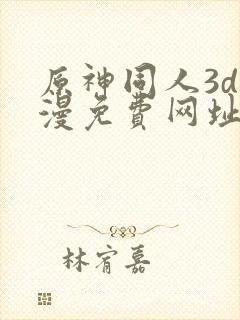 原神同人3d
漫免費网址
林宥嘉